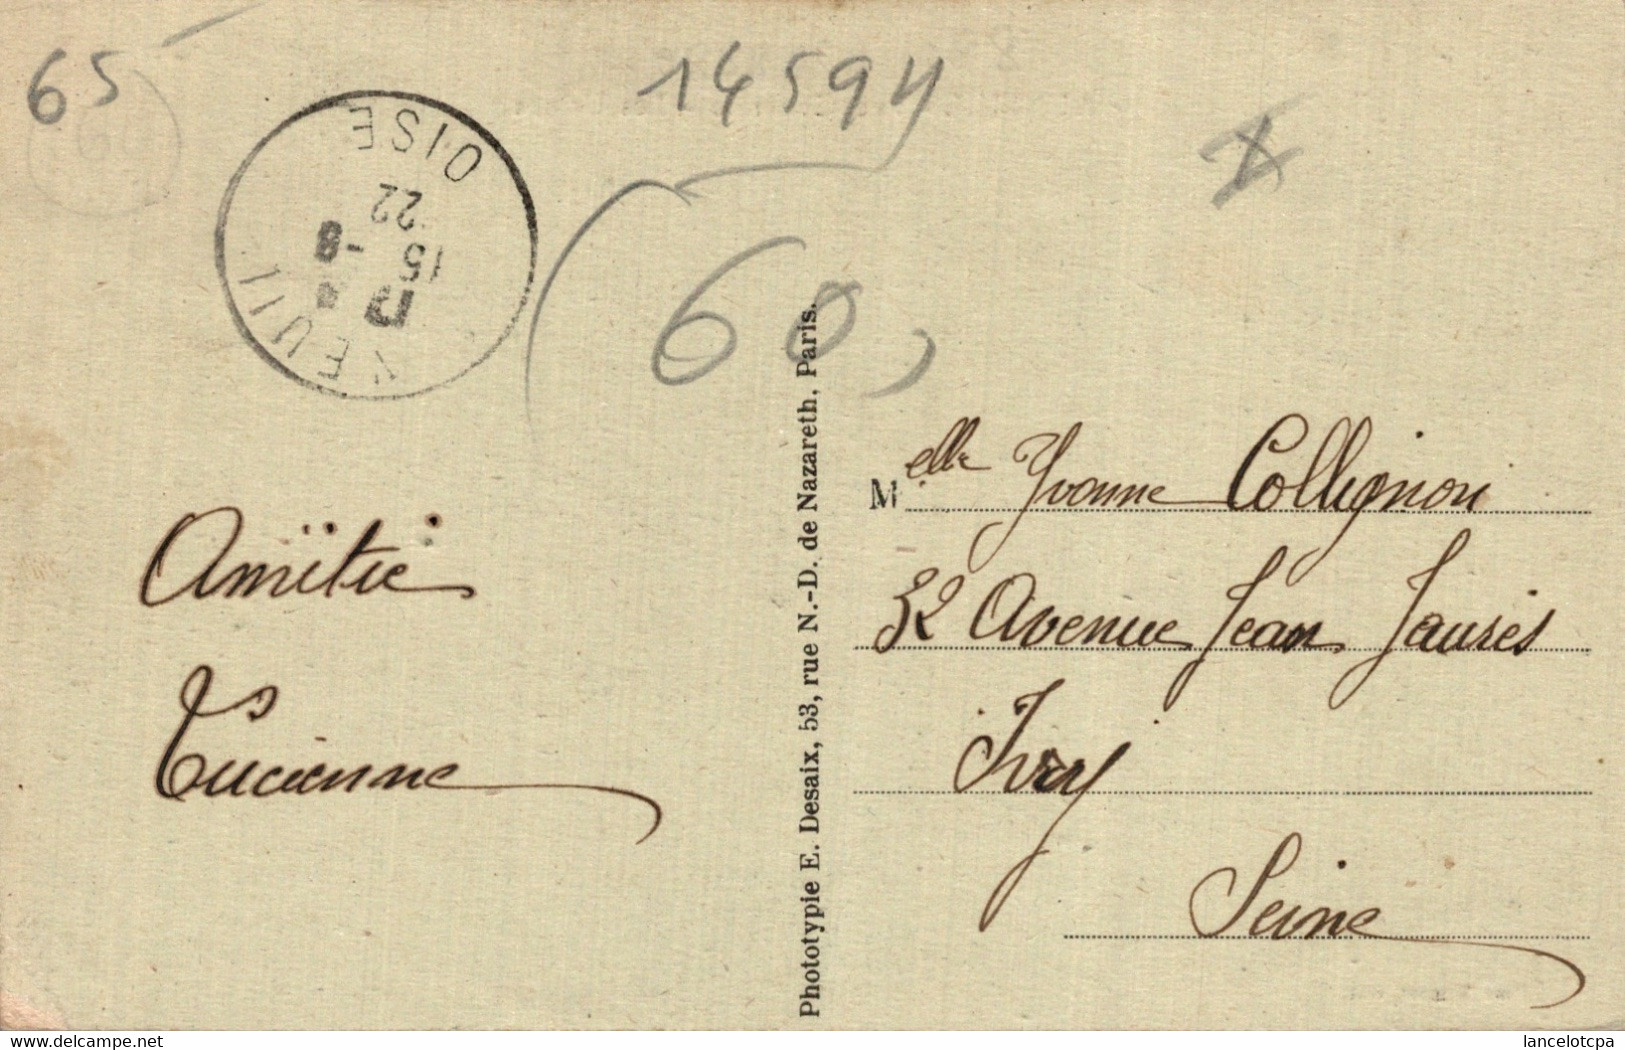 65
14594
60,
OISE
15
22
-8
Amitié
Lucienne
Phototypie E. Desaix, 53, rue N.-D. de Nazareth, Paris.
Melle Yvonne Collignon
32 Avenue Jean Jaurès
Ivry
Seine
www.delcampe.net
lancelotcpa